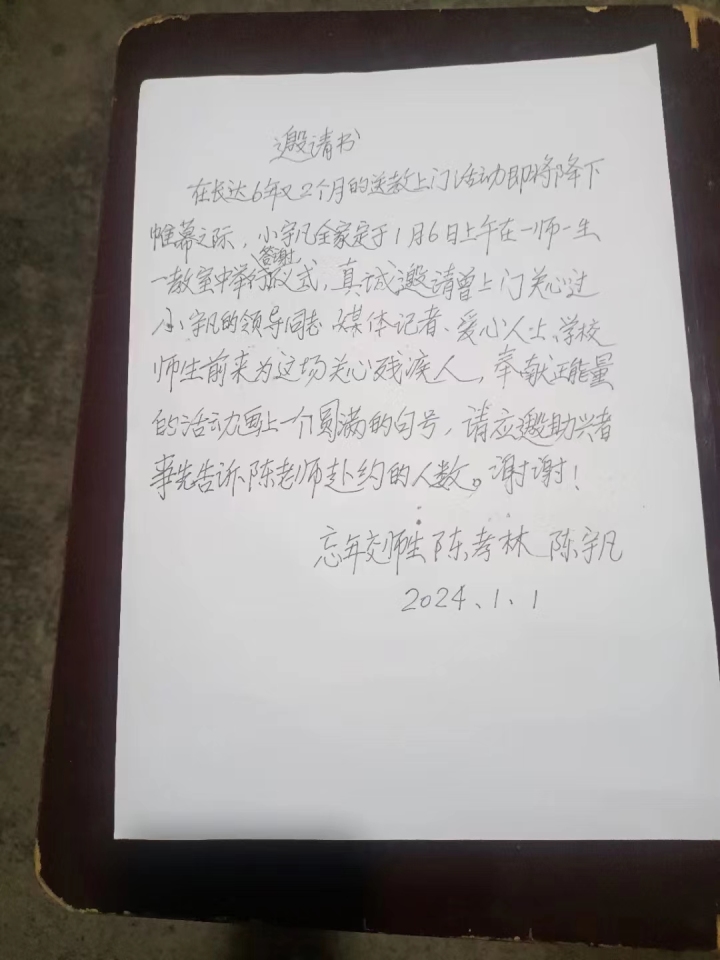 邀请书
在长达6年又2个月的送教上门活动即将降下
帷幕之际，小宇凡全家定于1月6日上午在一师一生
一教室中举行答谢仪式，真诚邀请曾上门关心过
小宇凡的领导同志、媒体记者、爱心人士、学校
师生前来为这场关心残疾人，奉献正能量
的活动画上一个圆满的句号，请应邀助兴者
事先告诉陈老师赴约的人数。谢谢！
忘年交师生 陈孝林 陈宇凡
2024、1、1